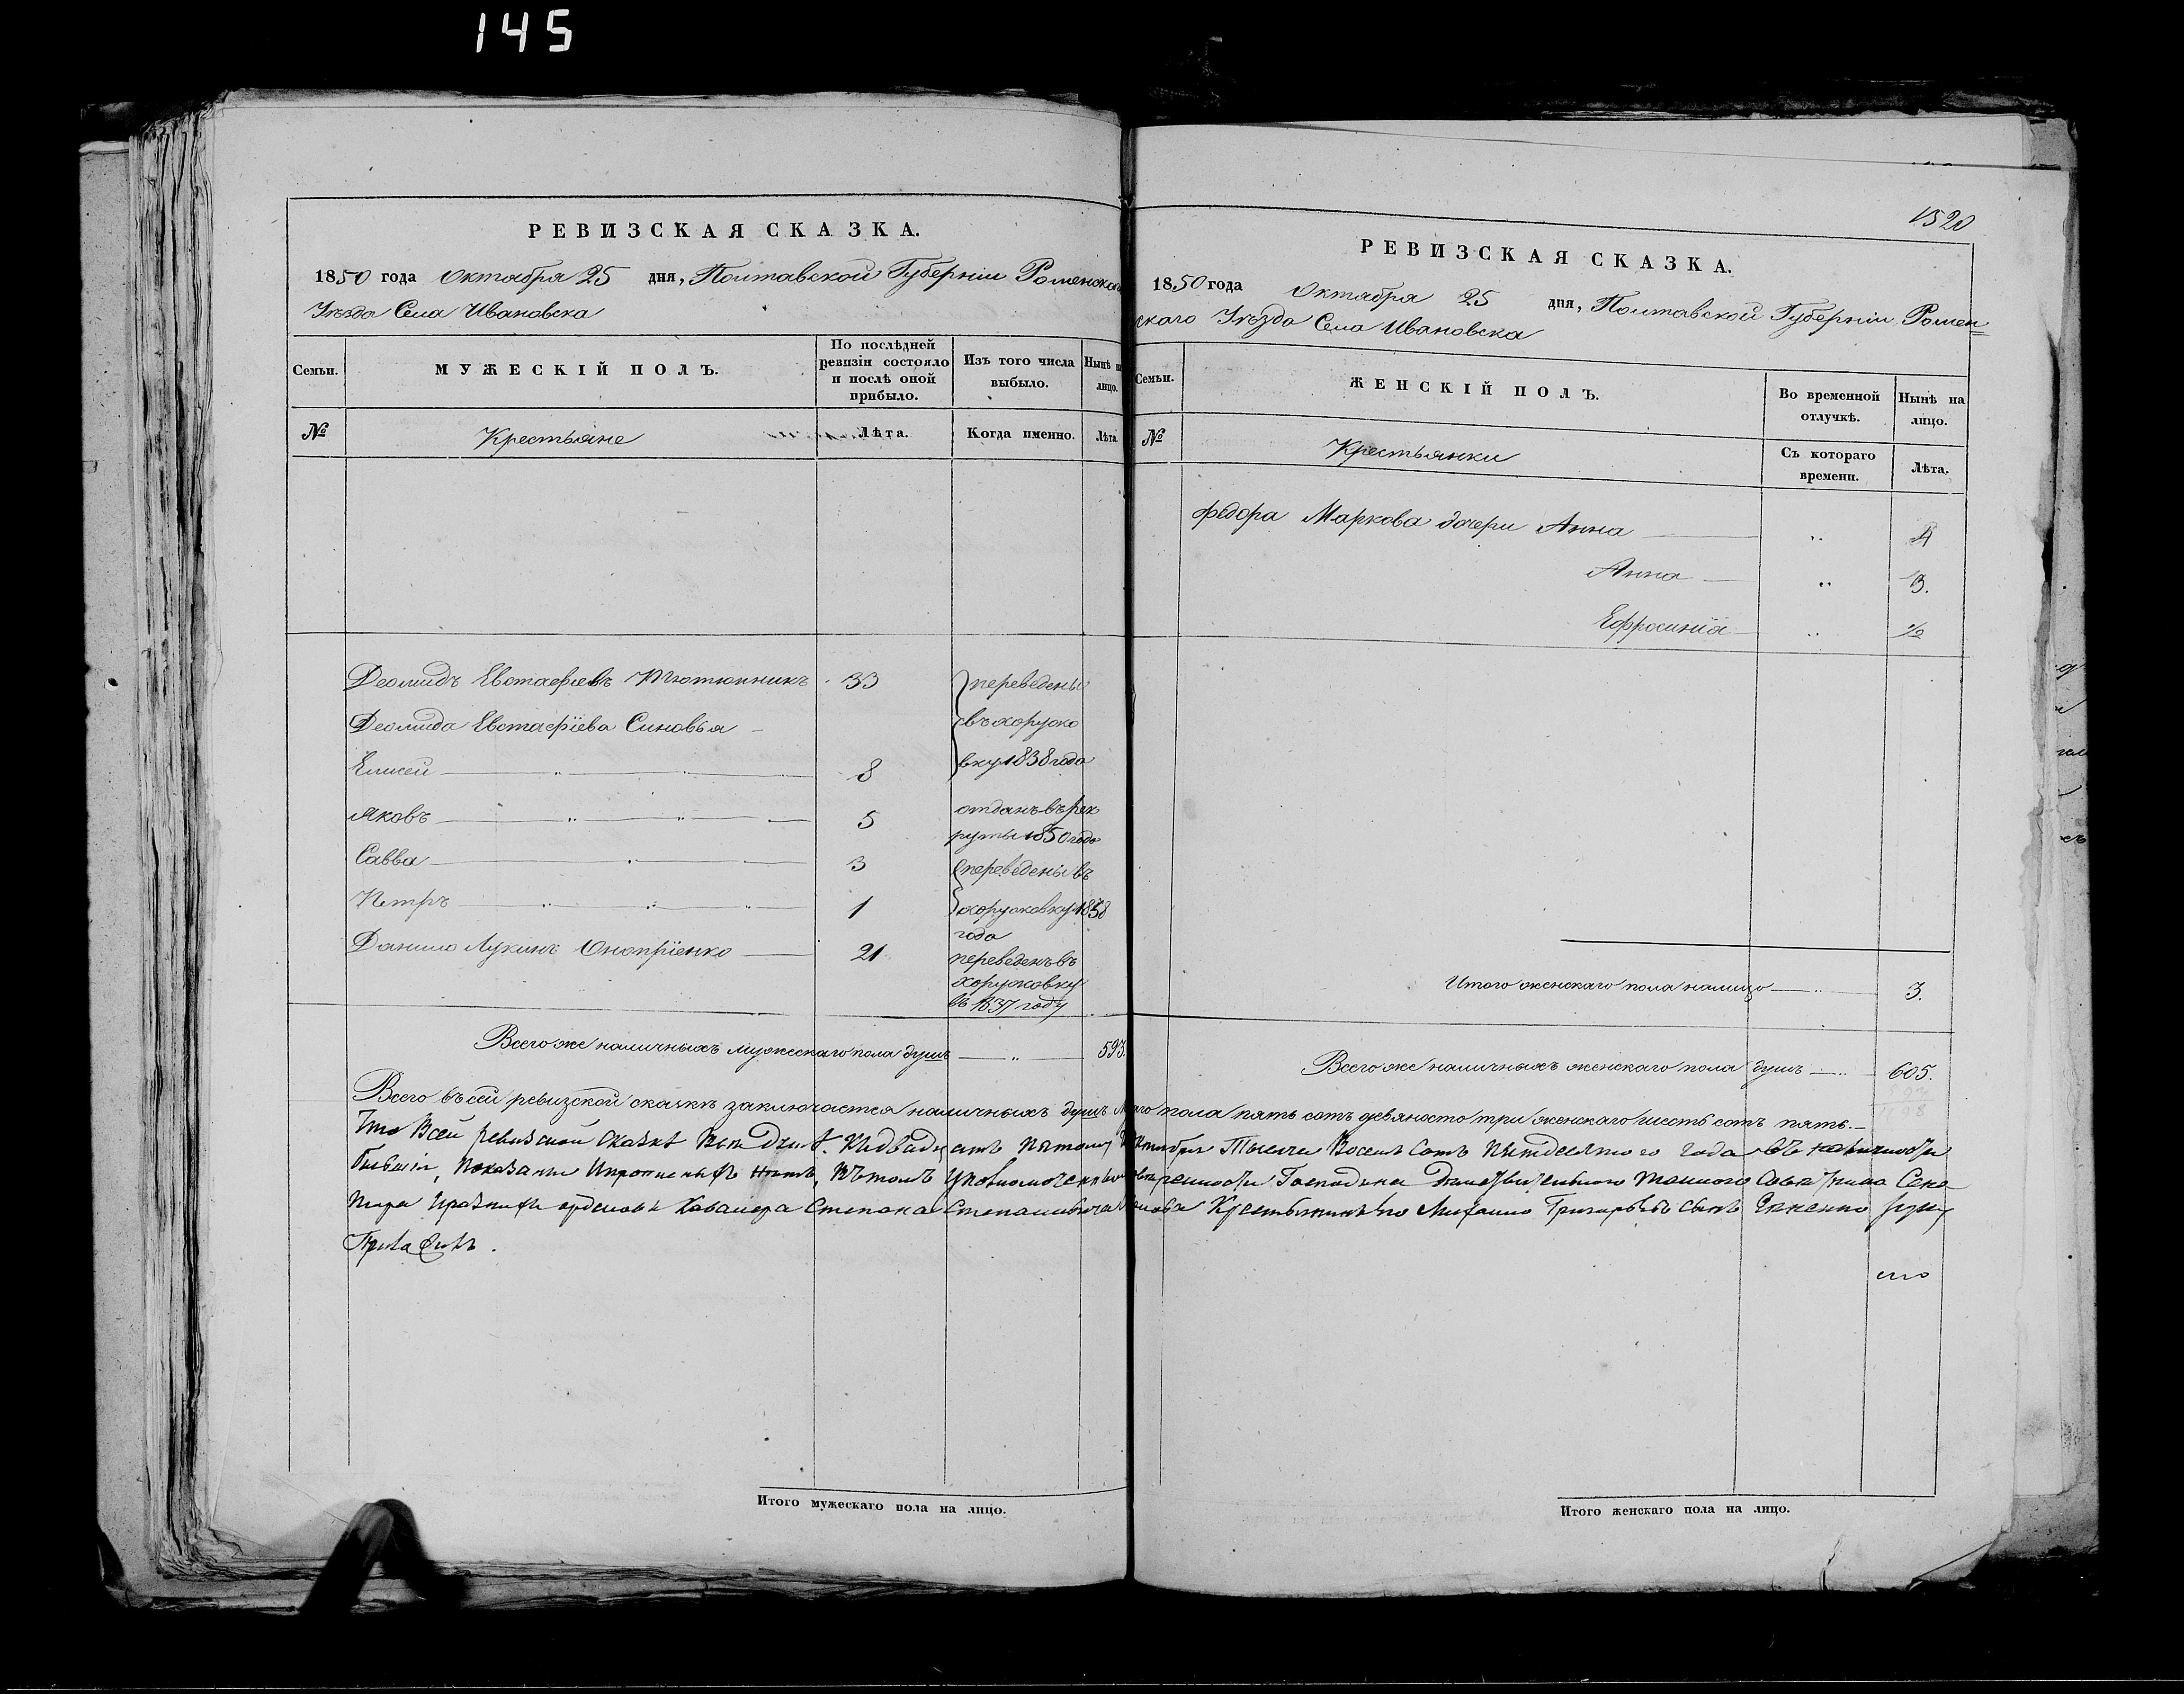 145
РЕВИЗСКАЯ СКАЗКА.
1850 года Октября 25 дня, Полтавской Губерніи Роменска
Уѣзда Села Ивановска
Семьи.
МУЖЕСКІЙ ПОЛЪ.
По послѣдней ревизіи состояло и послѣ оной прибыло.
Изъ того числа выбыло.
Нынѣ на лицо.
№
Крестьяне
Лѣта.
Когда именно.
Лѣта.
Деомидъ Евстафіевъ Тютюнникъ 33 переведены
Деомида Евстафіева Синовья въ хоружо
Елисей 8 вку 1838 года
Яковъ 5 отданъ въ рек
руты 1850 года
Савва 3 переведены въ
Петръ 1 хоружовку 1838
года
Данило Лукинъ Оноприенко 21 переведенъ въ
хоружовку
въ 1837 году
Всего же наличныхъ мужескаго пола душъ 593.
1520
РЕВИЗСКАЯ СКАЗКА.
1850 года Октября 25 дня, Полтавской Губерніи Ромен=
скаго Уѣзда Села Ивановска
Семьи.
ЖЕНСКІЙ ПОЛЪ.
Во временной отлучкѣ.
Нынѣ на лицо.
№
Крестьянки
Съ котораго времени.
Лѣта.
Федора Маркова дочери Анна „ 4
Анна „ 3.
Ефросинія „ 1/2
Итого женскаго пола налицо „ 3.
Всего же наличныхъ женскаго пола душъ 605.
Всего въ сей ревизской сказкѣ заключается наличныхъ душъ пола пять сотъ девяносто три женскаго шесть сотъ пять.
Что Всей ревизской Сказкѣ Кадвадцатъ Пятому Октября Тысяча Восемъ Сотъ Пятдесятого Года въ наличности
бывшіи, Показаны нѣтъ, Вътомъ Господина Дѣйствительного Тайного Совѣтника Сена
тора Иразныхъ орденовъ Кавалера Степана Степановича Крестьянинъ Михайло Григорьевъ Сынъ руку
Приложилъ.
Итого мужескаго пола на лицо.
Итого женскаго пола на лицо.